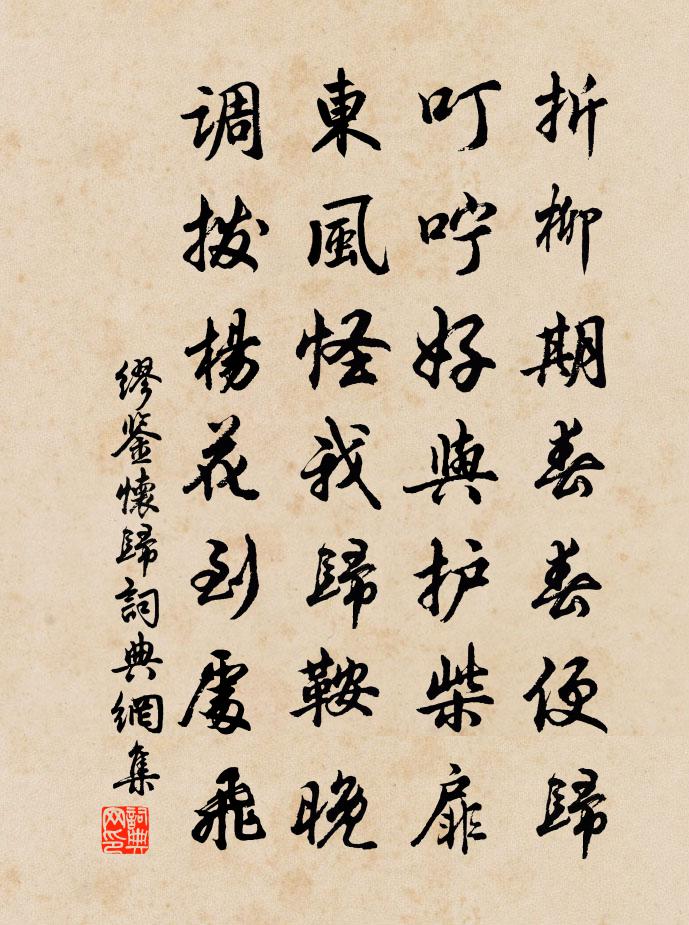 折柳期春春便歸
叮咛好與护柴扉
東風怪我歸鞍晚
调拨楊花到處飛
繆鉴懷歸詞典網集
詞典網印